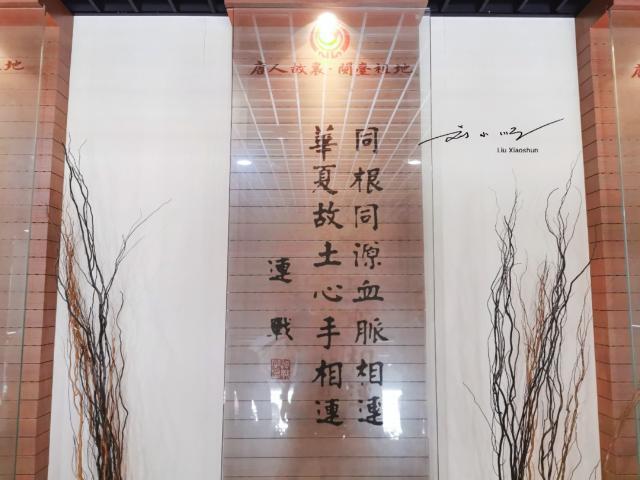 唐人故里·闽台祖地
同根同源血脈相連
華夏故土心手相連
連戰
刘小顺
Liu Xiaoshun
地